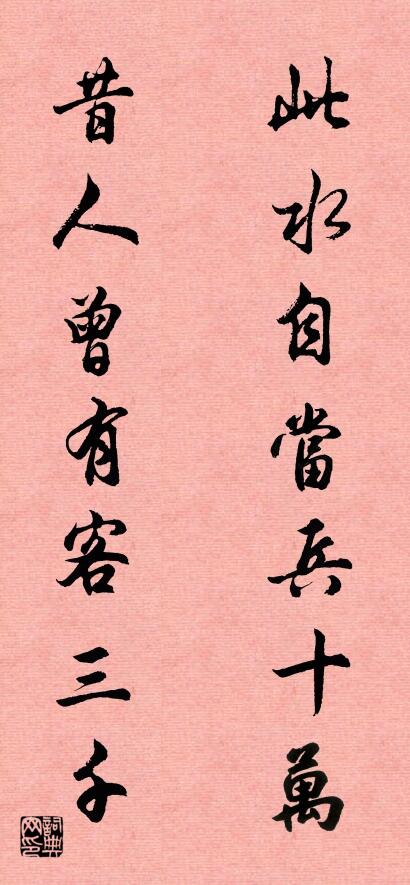 此水自當兵十萬
昔人曾有客三千
詞典网印